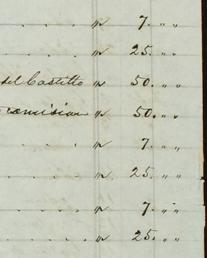 . . . . „ 7. „ „
. . . . „ 25. „ „
del Castillo „ 50. „ „
remision „ 50. „ „
. . . . „ 7. „ „
. . . . „ 25. „ „
. . . . „ 7. „ „
. . . . „ 25. „ „